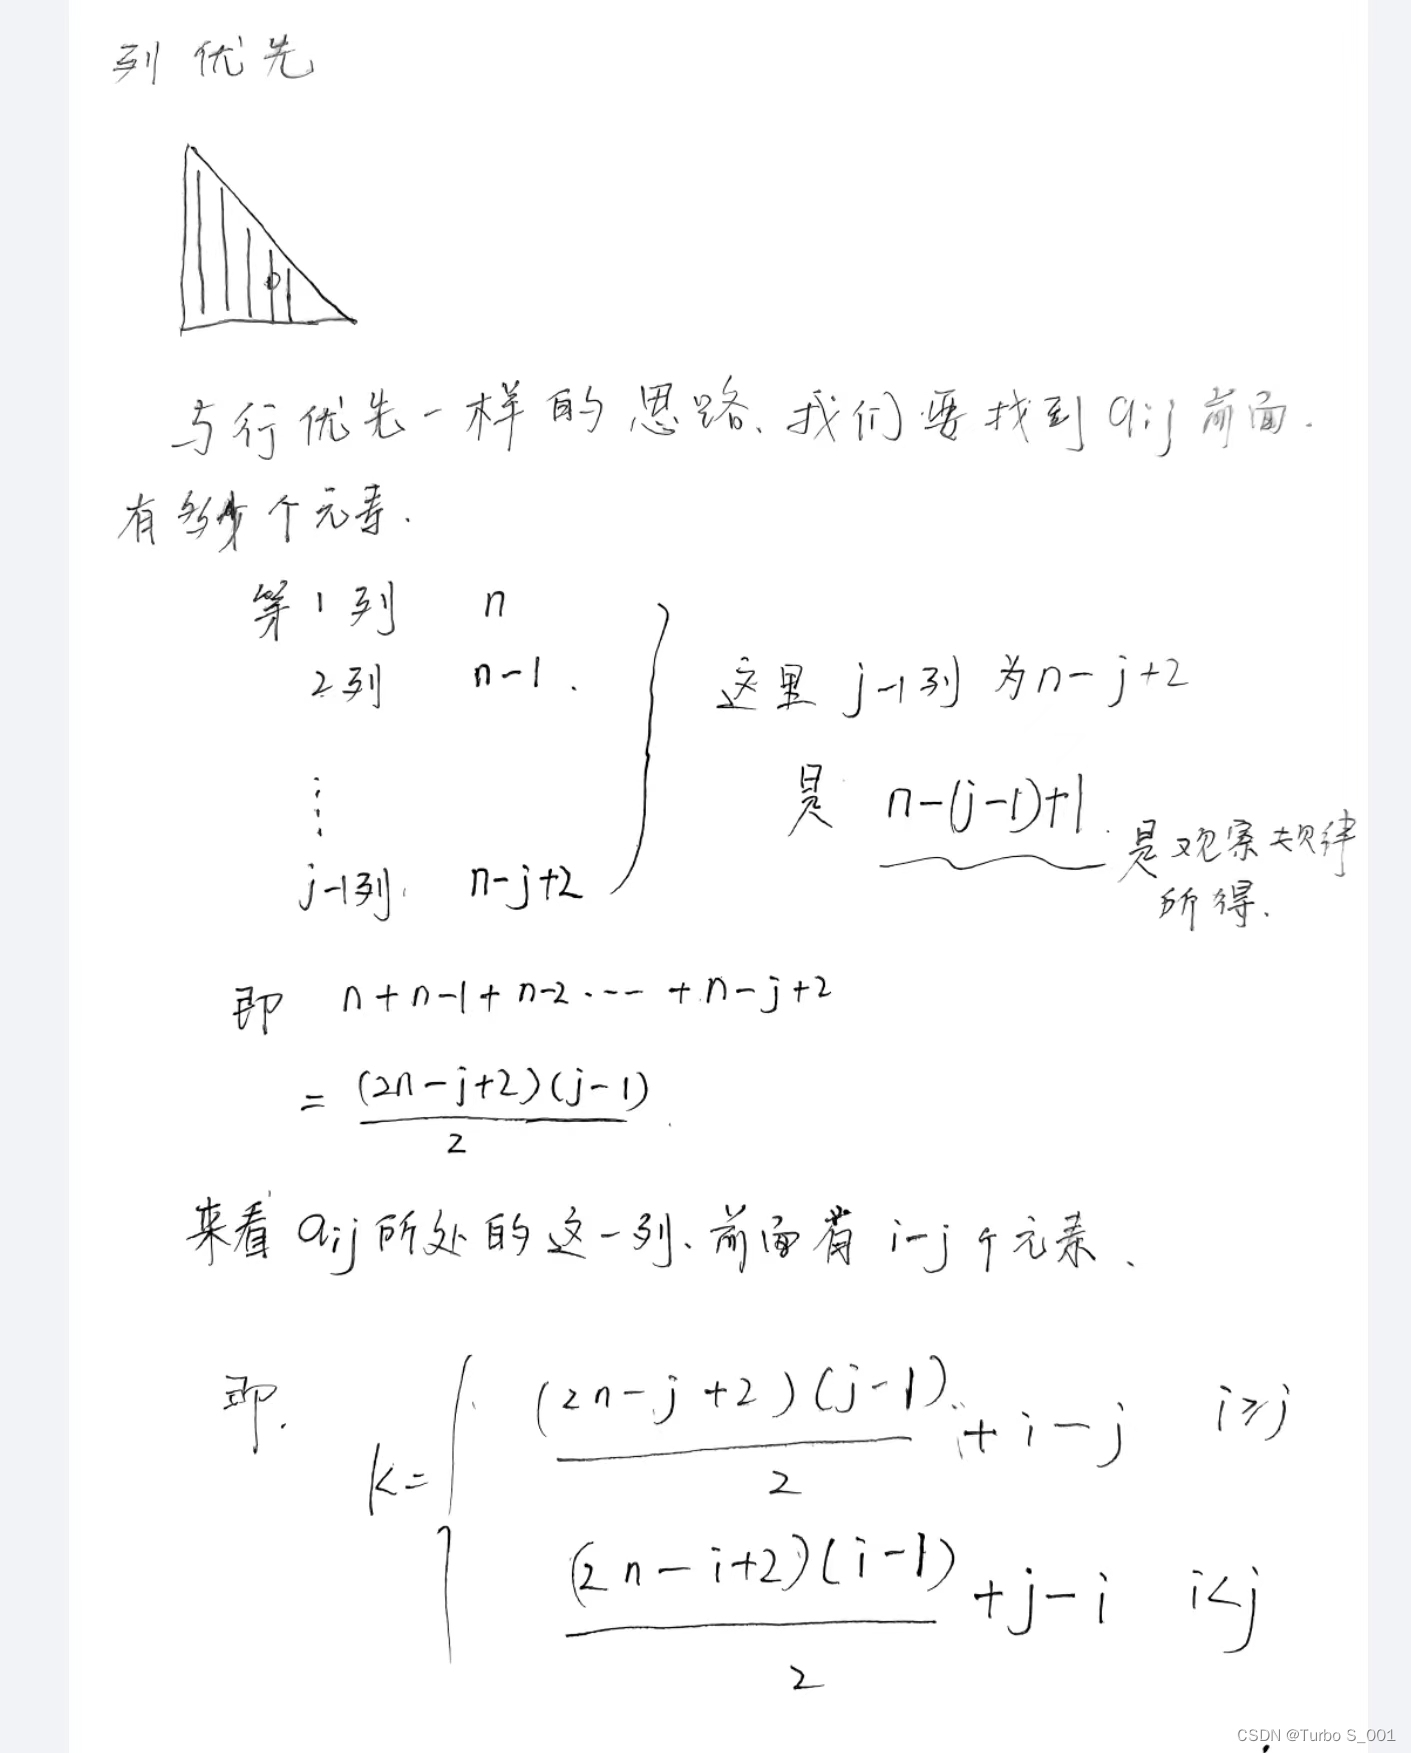 列优先
与行优先一样的思路、我们要找到aij前面.
有多少个元素.
第1列 n
2列 n-1.
⋮
j-1列. n-j+2
这里 j-1列 为n-j+2
是 n-(j-1)+1. 是观察规律
所得.
即 n+n-1+n-2.---+n-j+2
= (2n-j+2)(j-1)/2.
来看aij所处的这一列、前面有 i-j个元素、
即.
k= { (2n-j+2)(j-1)/2 + i-j i≥j
(2n-i+2)(i-1)/2 +j-i i<j
CSDN @Turbo S_001